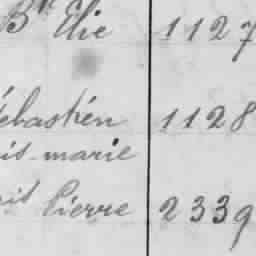 Bte Elie 1127
ébastien 1128
is-marie
Pierre 2339